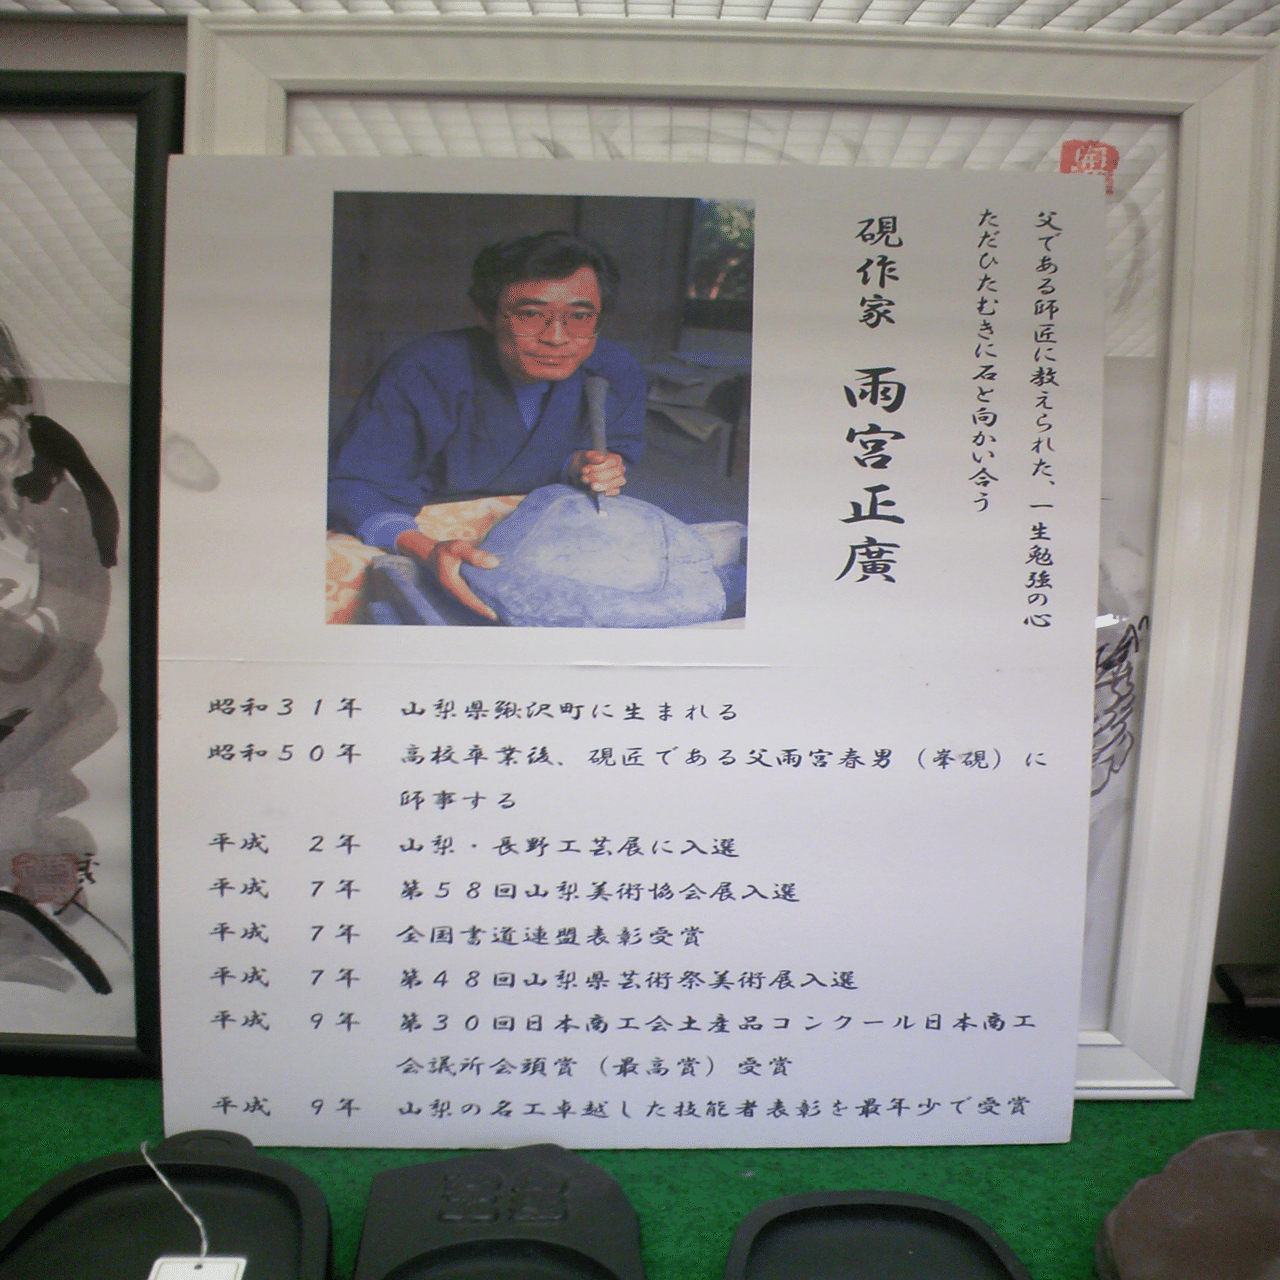 父である師匠に教えられた、一生勉強の心
ただひたむきに石と向かい合う
硯作家 雨宮正廣
昭和31年 山梨県鰍沢町に生まれる
昭和50年 高校卒業後、硯匠である父雨宮春男（峯硯）に
師事する
平成 2年 山梨・長野工芸展に入選
平成 7年 第58回山梨美術協会展入選
平成 7年 全国書道連盟表彰受賞
平成 7年 第48回山梨県芸術祭美術展入選
平成 9年 第30回日本商工会土産品コンクール日本商工
会議所会頭賞（最高賞）受賞
平成 9年 山梨の名工卓越した技能者表彰を最年少で受賞